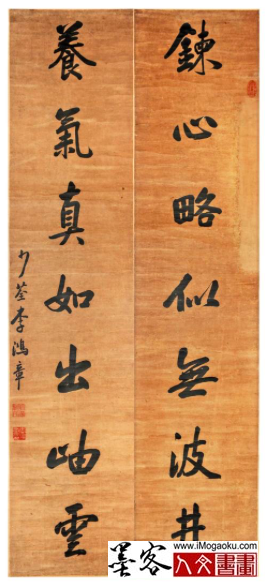 鍊心略似無波井
養氣真如出岫雲
少荃李鴻章
www.iMogaoku.com
墨客
人文書畫